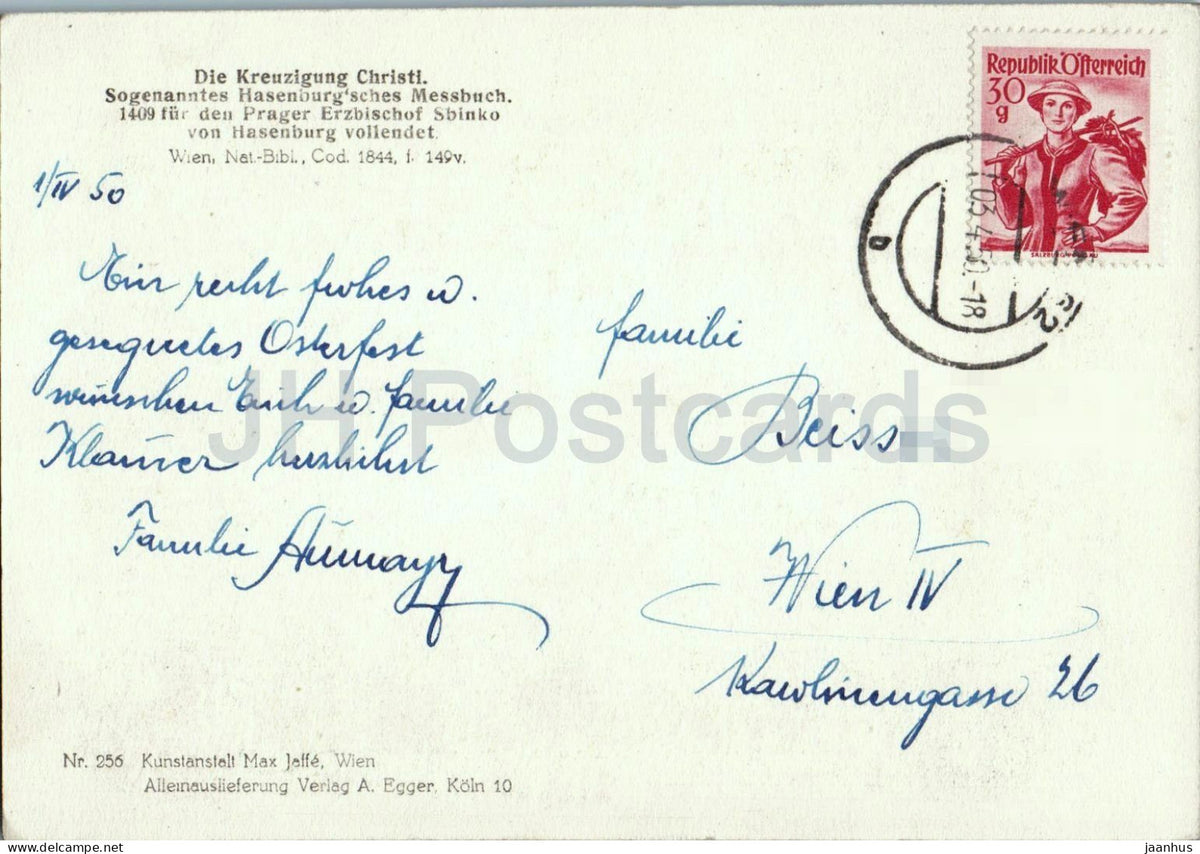 Die Kreuzigung Christi.
Sogenanntes Hasenburg'sches Messbuch.
1409 für den Prager Erzbischof Sbinko
von Hasenburg vollendet.
Wien, Nat.-Bibl., Cod. 1844, f. 149v.
1/IV 50
Ein recht frohes u.
gesegnetes Osterfest
wünschen Euch u. familie
herzlichst
Familie Aumayr
Republik Österreich
30
g
SALZBURG
03.4.50.-18
b
familie
Beiss
Wien IV
Karolinengasse 26
JH Postcards
Nr. 256 Kunstanstalt Max Jaffé, Wien
Alleinauslieferung Verlag A. Egger, Köln 10
www.delcampe.net
jaanhus